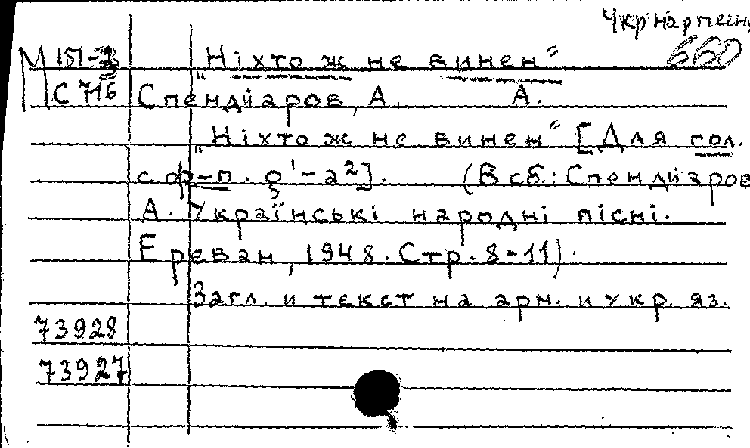 Укрнарпесни
660
М 151-3 "Ніхто ж не винен"
С 716 Спендіаров, А. А.
"Ніхто ж не винен" [Для гол.
с ф-п. g'-a²]. (В сб.: Спендіаров
А. Українські народні пісні.
Ереван, 1948. Стр. 8-11).
Загл. и текст на арм. и укр. яз.
73928
73927